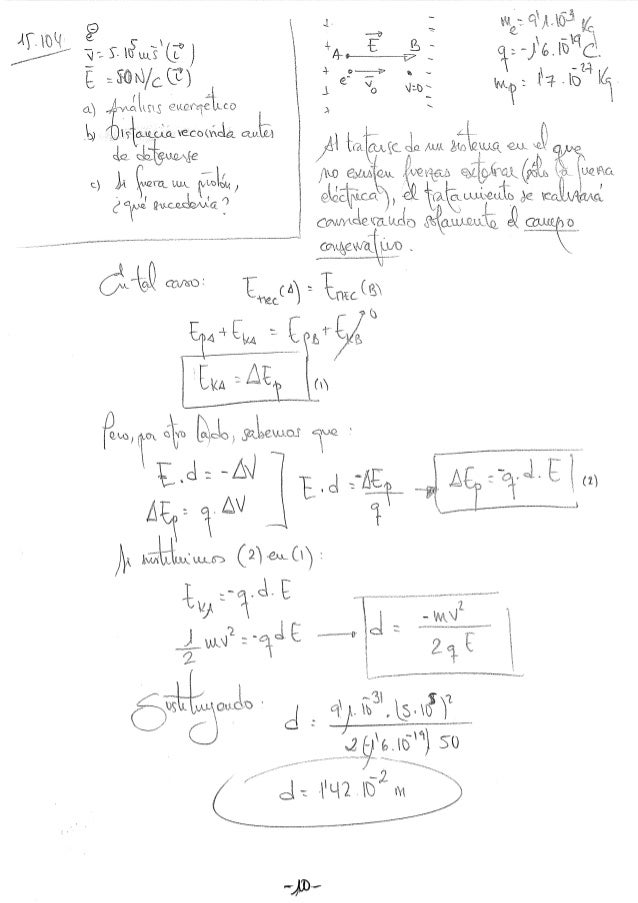 15.104
e⁻
v̄ = 5·10⁵ m s⁻¹ (i⃗)
E⃗ = 50 N/C (i⃗)
a) Análisis energético
b) Distancia recorrida antes
de detenerse
c) Si fuera un protón,
¿qué sucedería?
+ A E⃗ B −
+ e⁻ v⃗₀ v=0 −
mₑ = 9'1·10⁻³ Kg
q = -1'6·10⁻¹⁹ C
mp = 1'7·10⁻²⁷ Kg
Al tratarse de un sistema en el que
no existen fuerzas externas (sólo la fuerza
eléctrica), el tratamiento se realizará
considerando solamente el campo
conservativo.
En tal caso: E_MEC (A) = E_MEC (B)
E_PA + E_KA = E_PB + E_KB → 0
E_KA = ΔE_p (1)
Pero, por otro lado, sabemos que:
E·d = -ΔV
ΔE_p = q·ΔV
E·d = -ΔE_p / q → ΔE_p = -q·d·E (2)
Si sustituimos (2) en (1):
E_KA = -q·d·E
1/2 mv² = -q d E → d = -mv² / 2 q E
Sustituyendo: d = 9'1·10⁻³¹·(5·10⁵)² / 2(-1'6·10⁻¹⁹) 50
d = 1'42·10⁻² m
-10-